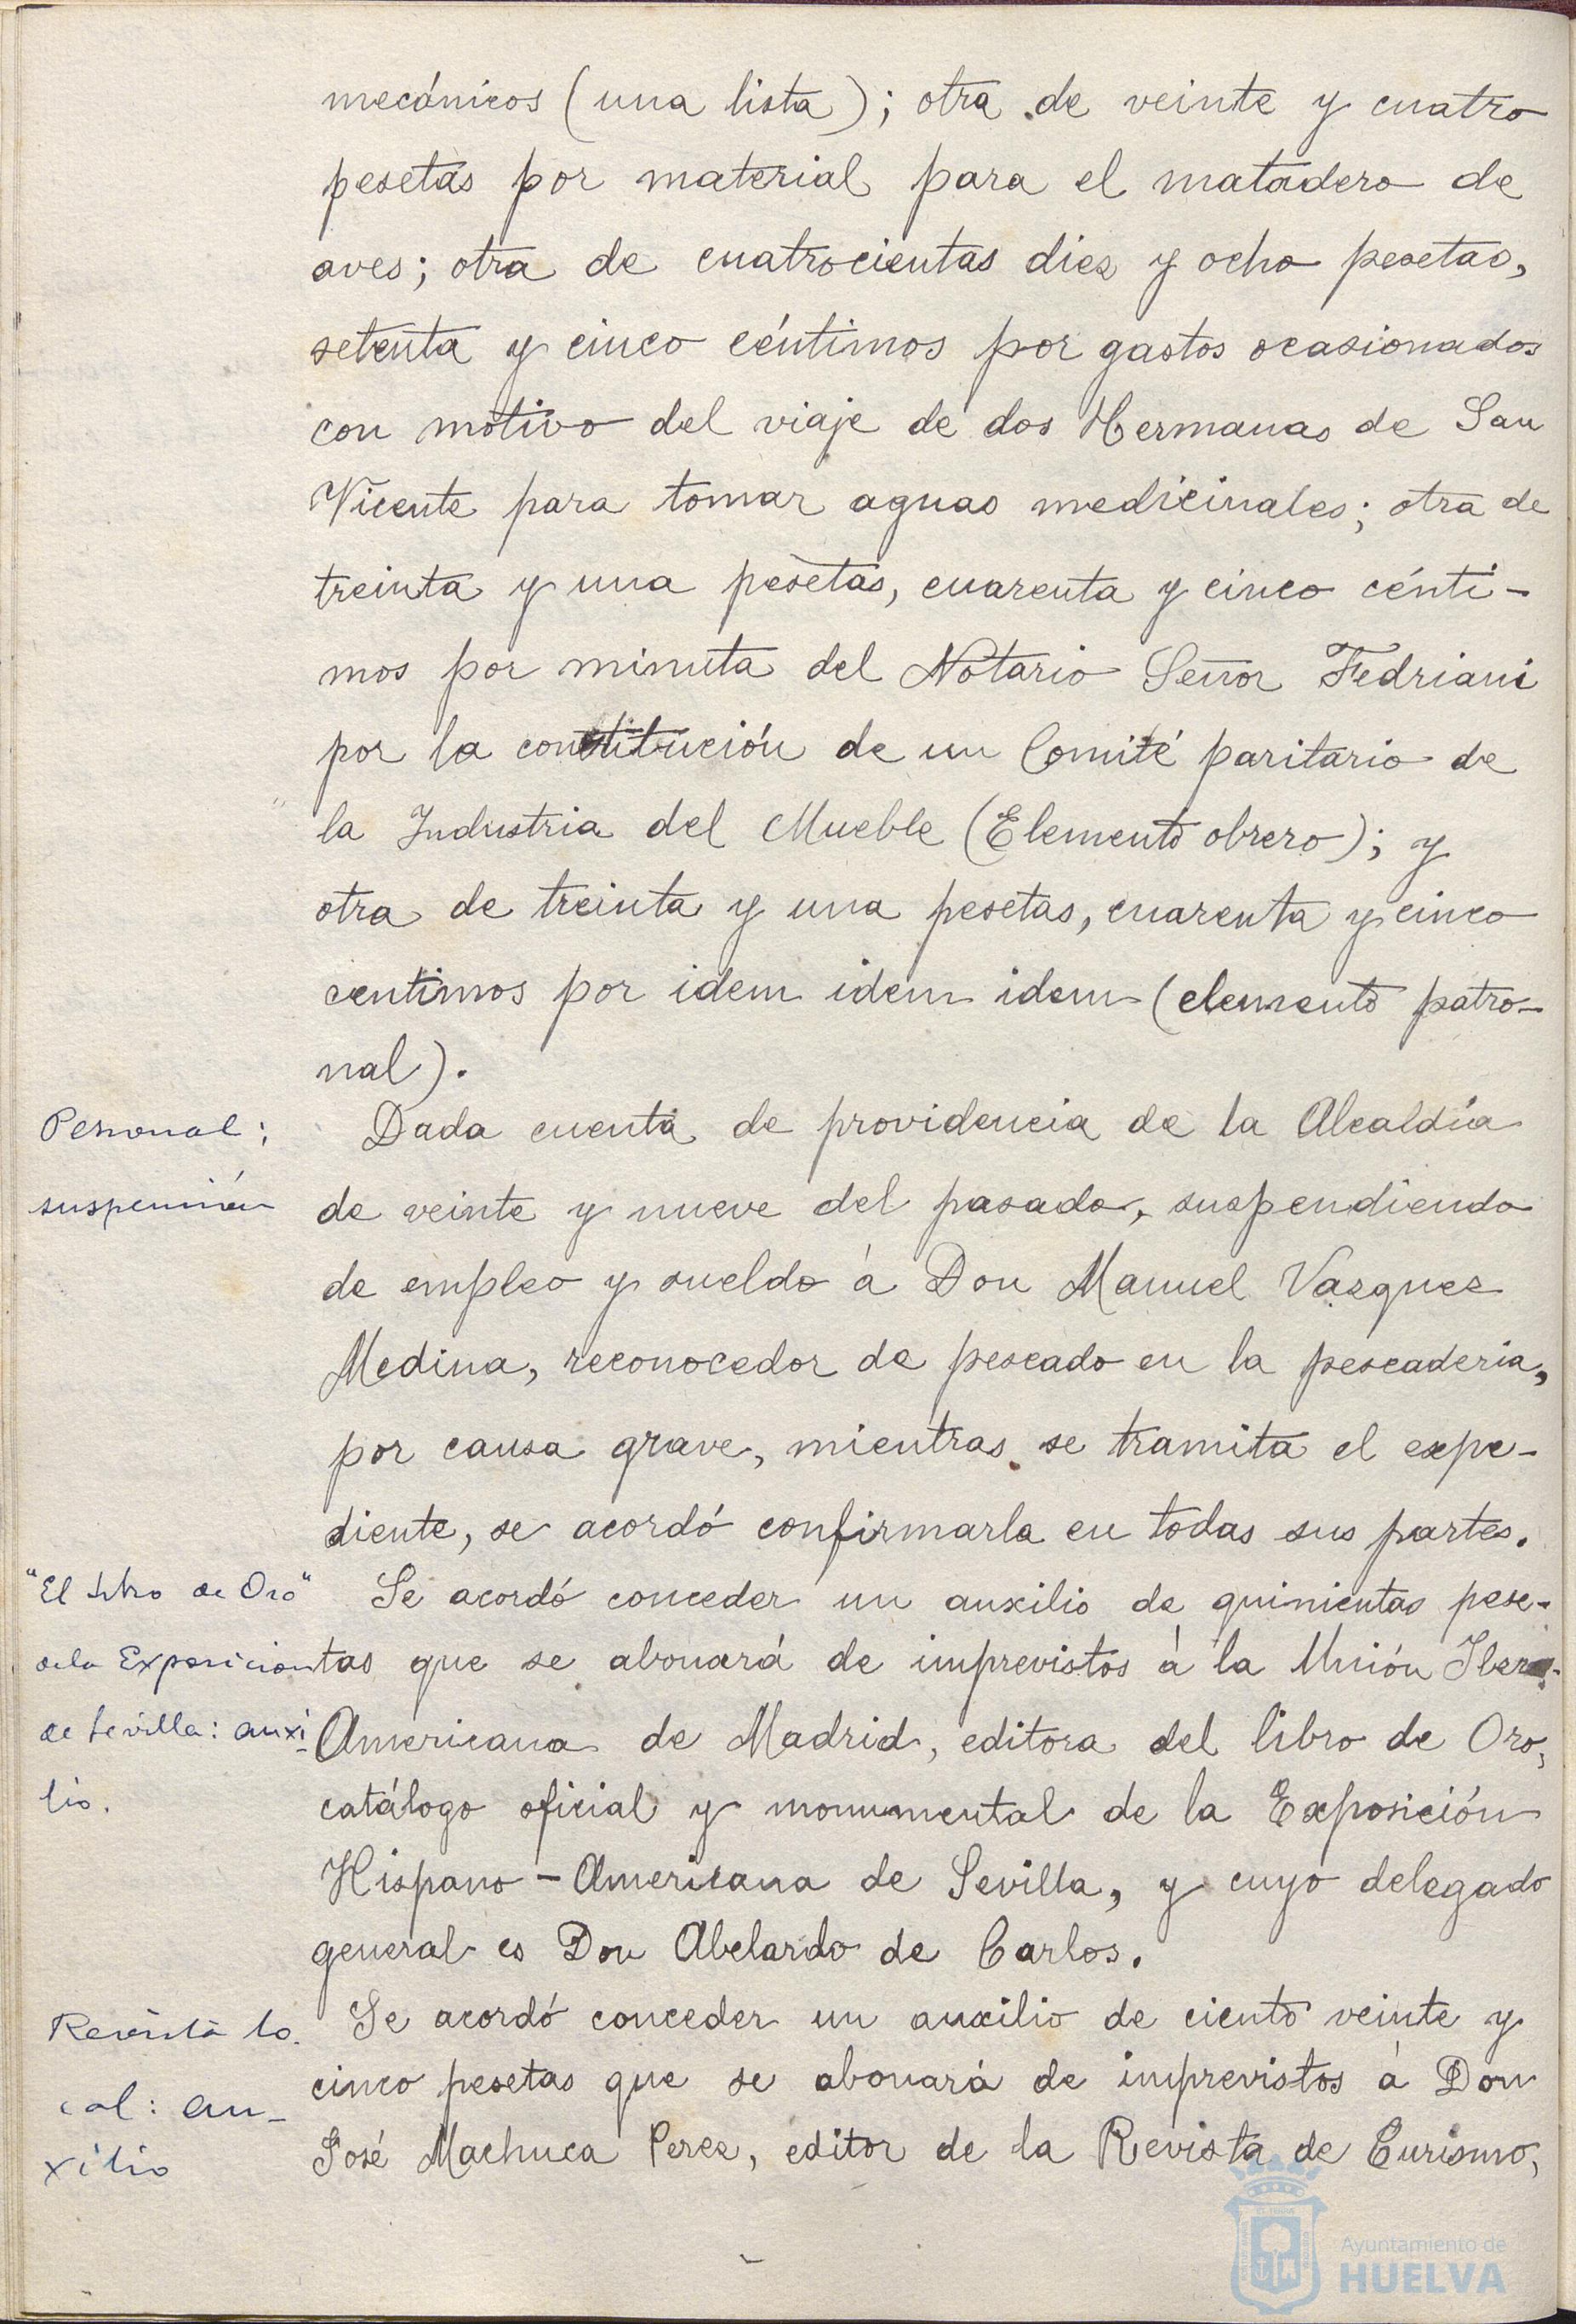 mecánicos (una lista); otra de veinte y cuatro
pesetas por material para el matadero de
aves; otra de cuatrocientas diez y ocho pesetas,
setenta y cinco céntimos por gastos ocasionados
con motivo del viaje de dos Hermanas de San
Vicente para tomar aguas medicinales; otra de
treinta y una pesetas, cuarenta y cinco cénti-
mos por minuta del Notario Señor Fedriani
por la constitución de un Comité paritario de
la Industria del Mueble (Elemento obrero); y
otra de treinta y una pesetas, cuarenta y cinco
centimos por idem idem idem (elemento patro-
nal).
Personal;
suspensión
Dada cuenta de providencia de la Alcaldía
de veinte y nueve del pasado, suspendiendo
de empleo y sueldo á Don Manuel Vazquez
Medina, reconocedor de pescado en la pescaderia,
por causa grave, mientras se tramita el expe-
diente, se acordó confirmarla en todas sus partes.
"El libro de Oro"
de la Exposicion
de Sevilla: auxi-
lio.
Se acordó conceder un auxilio de quinientas pese-
tas que se abonará de imprevistos á la Unión Ibero-
Americana de Madrid, editora del libro de Oro,
catálogo oficial y monumental de la Exposición
Hispano-Americana de Sevilla, y cuyo delegado
general es Don Abelardo de Carlos.
Revista lo-
cal: au-
xilio
Se acordó conceder un auxilio de ciento veinte y
cinco pesetas que se abonará de imprevistos á Don
José Machuca Perez, editor de la Revista de Turismo,
Ayuntamiento de
HUELVA